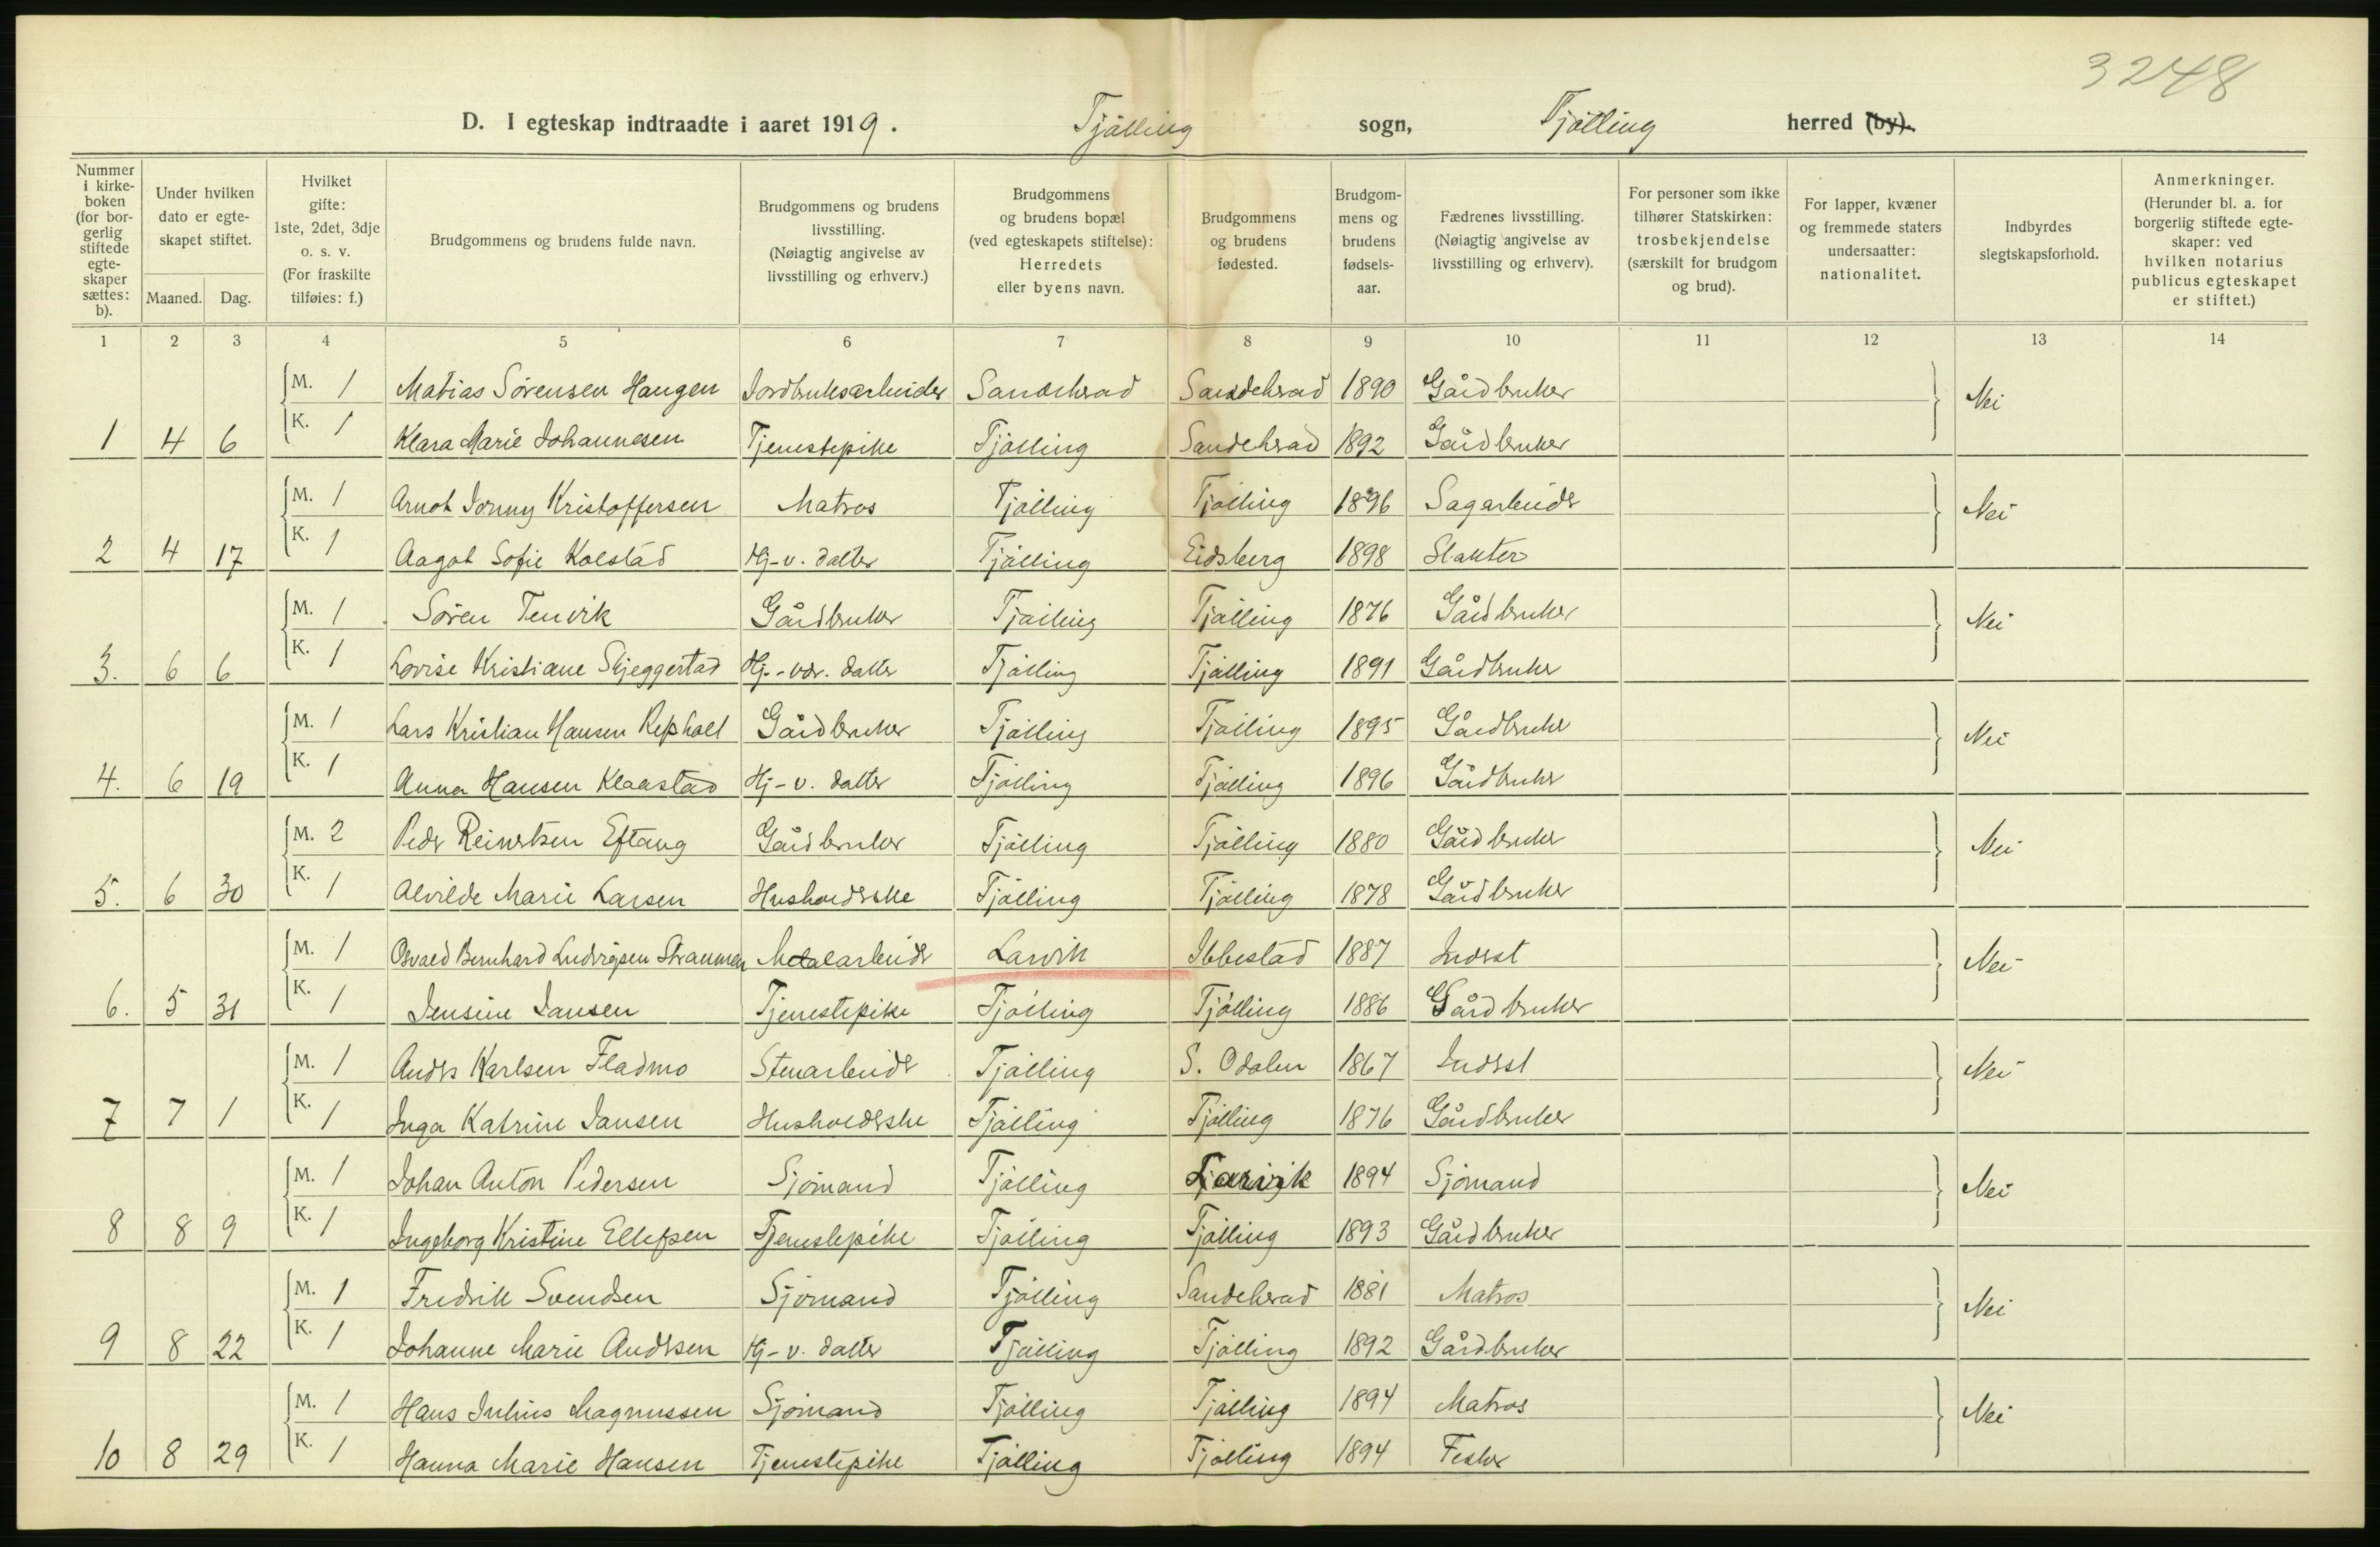 3248
D. I egteskap indtraadte i aaret 1919. Tjølling sogn, Tjølling herred (by).
Nummer i kirkeboken (for borgerlig stiftede egteskaper sættes: b).
Under hvilken dato er egteskapet stiftet.
Maaned. Dag.
Hvilket gifte: 1ste, 2det, 3dje o. s. v. (For fraskilte tilføies: f.)
Brudgommens og brudens fulde navn.
Brudgommens og brudens livsstilling. (Nøiagtig angivelse av livsstilling og erhverv.)
Brudgommens og brudens bopæl (ved egteskapets stiftelse): Herredets eller byens navn.
Brudgommens og brudens fødested.
Brudgommens og brudens fødselsaar.
Fædrenes livsstilling. (Nøiagtig angivelse av livsstilling og erhverv).
For personer som ikke tilhører Statskirken: trosbekjendelse (særskilt for brudgom og brud).
For lapper, kvæner og fremmede staters undersaatter: nationalitet.
Indbyrdes slegtskapsforhold.
Anmerkninger. (Herunder bl. a. for borgerlig stiftede egteskaper: ved hvilken notarius publicus egteskapet er stiftet.)
1 2 3 4 5 6 7 8 9 10 11 12 13 14
M. 1 Matias Sørensen Haugen Jordbruksarbeider Sandeherad Sandeherad 1890 Gårdbruker Nei
1 4 6 K. 1 Klara Marie Johannesen Tjenestepike Tjølling Sandeherad 1892 Gårdbruker
M. 1 Arnot Jonny Kristoffersen Matros Tjølling Tjølling 1896 Sagarbeider Nei
2 4 17 K. 1 Aagot Sofie Kolstad Hj-v. datter Tjølling Eidsberg 1898 Slakter
M. 1 Søren Tenvik Gårdbruker Tjølling Tjølling 1876 Gårdbruker Nei
3. 6 6 K. 1 Lovise Kristiane Skjeggestad Hj.-vær. datter Tjølling Tjølling 1891 Gårdbruker
M. 1 Lars Kristian Hansen Rephall Gårdbruker Tjølling Tjølling 1895 Gårdbruker Nei
4. 6 19 K. 1 Anna Hansen Klaastad Hj-v. datter Tjølling Tjølling 1896 Gårdbruker
M. 2 Peder Reinertsen Eftang Gårdbruker Tjølling Tjølling 1880 Gårdbruker Nei
5. 6 30 K. 1 Alvilde Marie Larsen Husholderske Tjølling Tjølling 1878 Gårdbruker
M. 1 Osvald Bernhard Ludvigsen Straumen Metalarbeider Larvik Ibbestad 1887 Inderst Nei
6. 5 31 K. 1 Jensine Jansen Tjenestepike Tjølling Tjølling 1886 Gårdbruker
M. 1 Anders Karlsen Fladmo Stenarbeider Tjølling S. Odalen 1867 Inderst Nei
7 7 1 K. 1 Inga Katrine Jansen Husholderske Tjølling Tjølling 1876 Gårdbruker
M. 1 Johan Anton Pedersen Sjømand Tjølling Larvik 1894 Sjømand Nei
8 8 9 K. 1 Ingeborg Kristine Ellefsen Tjenestepike Tjølling Tjølling 1893 Gårdbruker
M. 1 Fredrik Svendsen Sjømand Tjølling Sandeherad 1881 Matros Nei
9 8 22 K. 1 Johanne Marie Andersen Hj-v. datter Tjølling Tjølling 1892 Gårdbruker
M. 1 Hans Julius Magnussen Sjømand Tjølling Tjølling 1894 Matros Nei
10 8 29 K. 1 Hanna Marie Hansen Tjenestepike Tjølling Tjølling 1894 Fisker